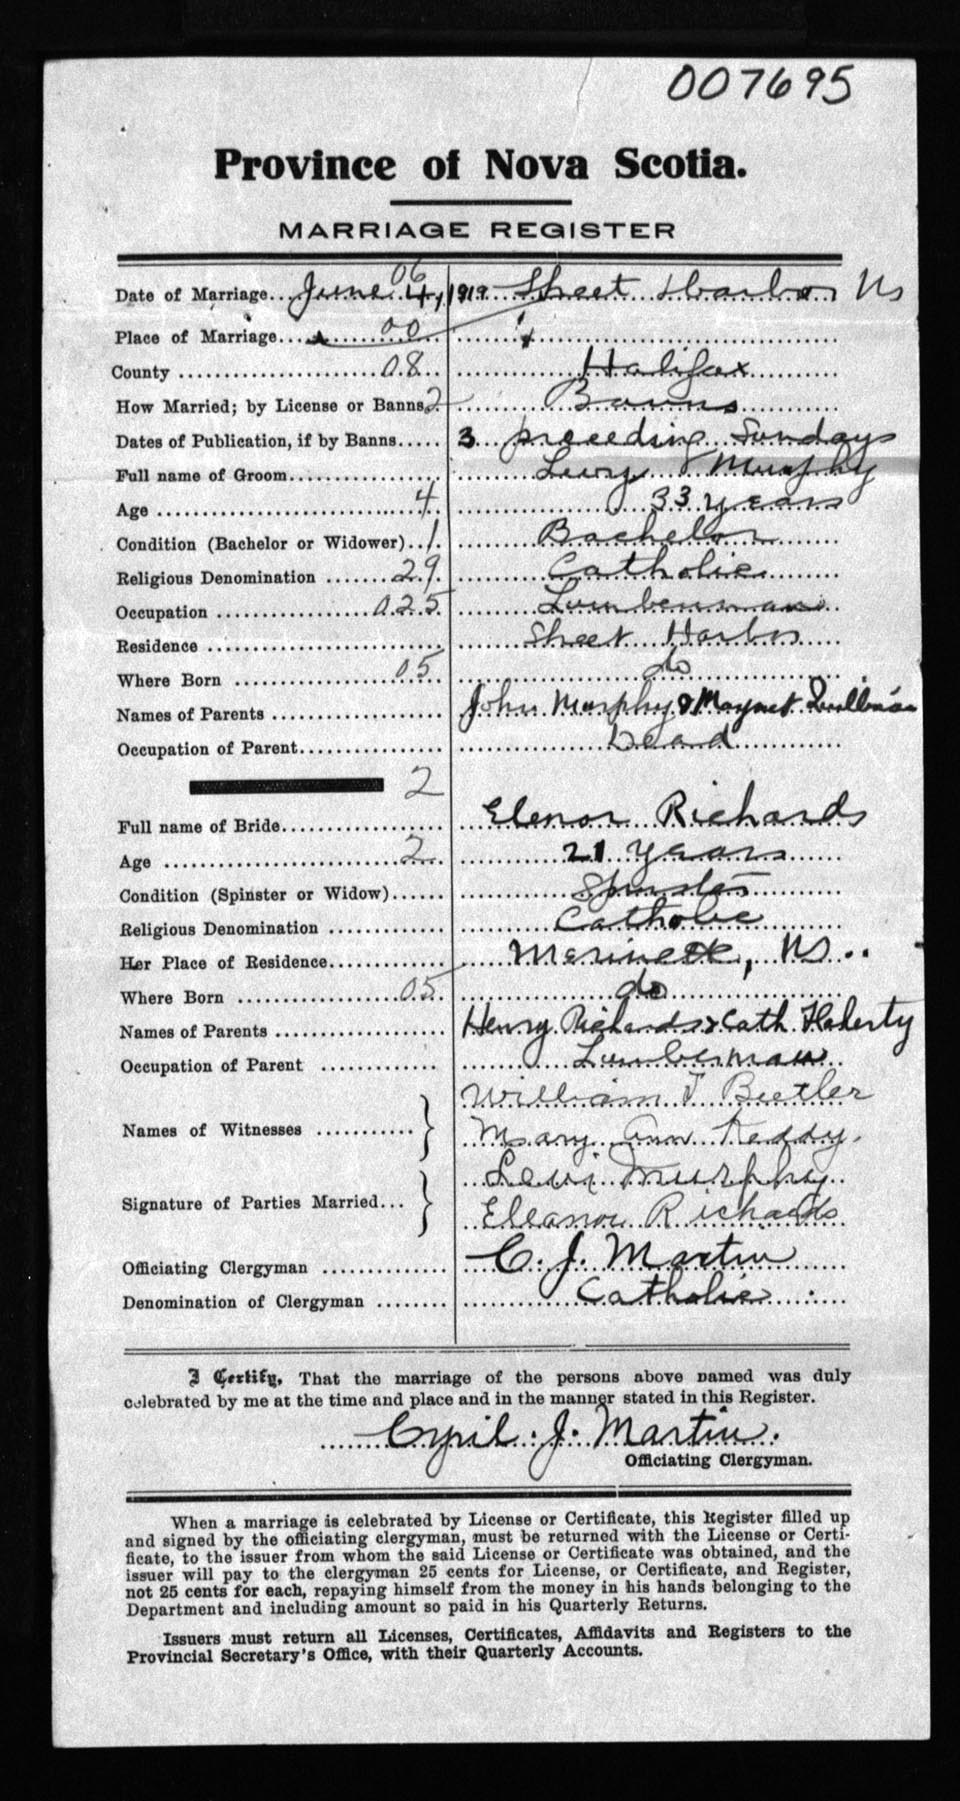 007695
Province of Nova Scotia.
MARRIAGE REGISTER
Date of Marriage... June 4, 1919 06 Sheet Harbor NS
Place of Marriage.... 00
County .................. 08 Halifax
How Married; by License or Banns. 2 Banns
Dates of Publication, if by Banns..... 3 preceding Sundays
Full name of Groom.................. Levy Murphy
Age ........................... 4 33 years
Condition (Bachelor or Widower).. 1. Bachelor
Religious Denomination ....... 29 Catholic
Occupation ................ 025 Lumberman
Residence ........................... Sheet Harbor
Where Born .................. 05 do
Names of Parents .................... John Murphy &
Occupation of Parent................. Dead
2
Full name of Bride................... Elenor Richards
Age ....................... 2 21 years
Condition (Spinster or Widow)...... Spinster
Religious Denomination ............. Catholic
Her Place of Residence.............. NS..
Where Born .................. 05 do
Names of Parents .................... Henry Richards & Cath. Flaherty
Occupation of Parent ............. Lumberman
William J Butler
Names of Witnesses ............ } Mary Ann Keddy.
Levi Murphy
Signature of Parties Married... } Eleanor Richards
Officiating Clergyman .............. C. J. Martin
Denomination of Clergyman ........ Catholic
I Certify, That the marriage of the persons above named was duly
celebrated by me at the time and place and in the manner stated in this Register.
Cyril. J. Martin.
Officiating Clergyman.
When a marriage is celebrated by License or Certificate, this Register filled up
and signed by the officiating clergyman, must be returned with the License or Certi-
ficate, to the issuer from whom the said License or Certificate was obtained, and the
issuer will pay to the clergyman 25 cents for License, or Certificate, and Register,
not 25 cents for each, repaying himself from the money in his hands belonging to the
Department and including amount so paid in his Quarterly Returns.
Issuers must return all Licenses, Certificates, Affidavits and Registers to the
Provincial Secretary's Office, with their Quarterly Accounts.